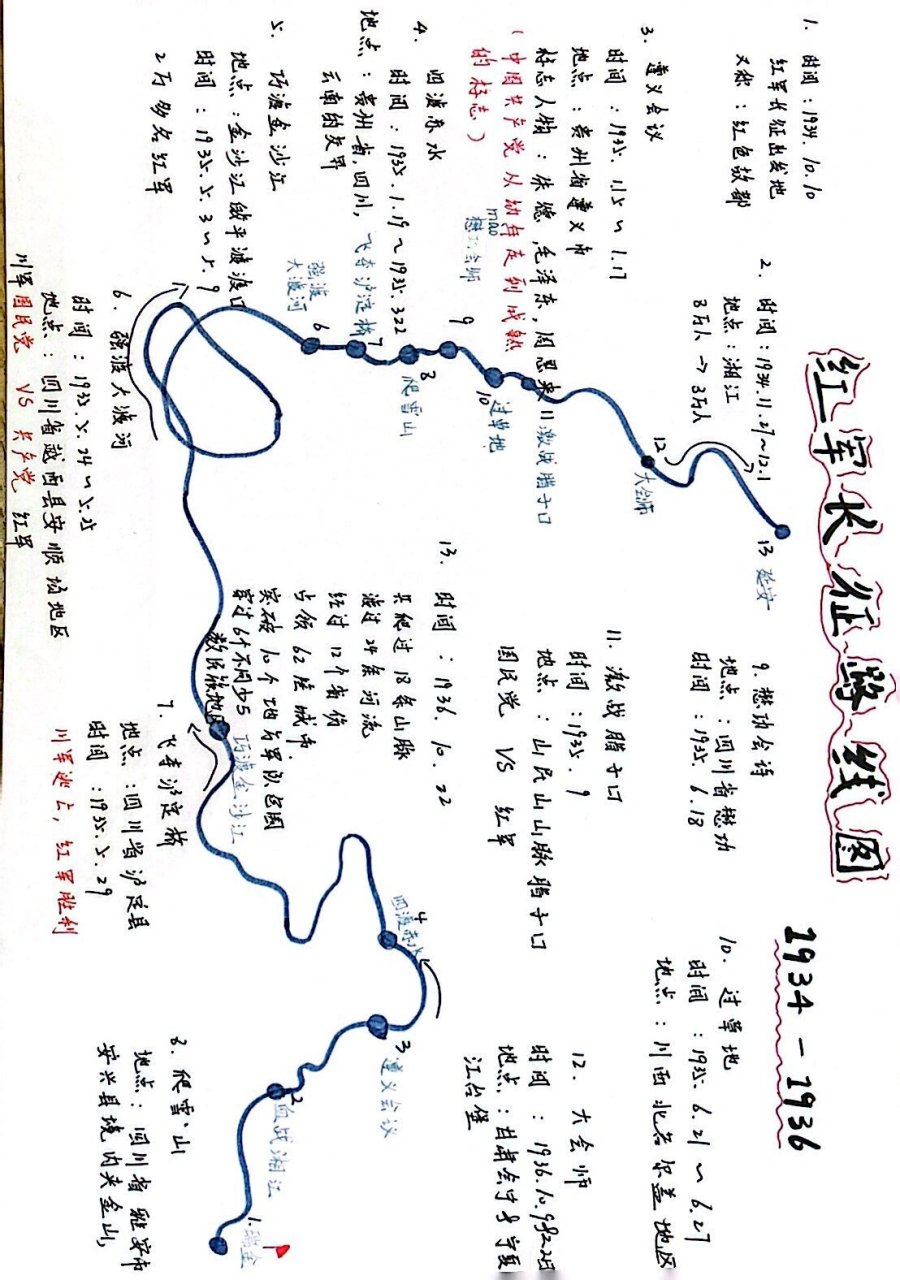 红军长征路线图
1934-1936
1. 时间：1934.10.10
红军长征出发地
又称：红色故都
2. 时间：1934.11.27~12.1
地点：湘江
8万人→3万人
3. 遵义会议
时间：1935.1.15~1.17
地点：贵州省遵义市
标志人物：朱德，毛泽东，周恩来
（中国共产党从幼年走到成熟
的标志）
4. 四渡赤水
时间：1935.1.19~1935.3.22
地点：贵州省，四川，
云南的交界
5. 巧渡金沙江
地点：金沙江皎平渡渡口
时间：1935.5.3~5.9
2万多名红军
6. 强渡大渡河
时间：1935.5.24~5.25
地点：四川省越西县安顺场地区
川军 国民党 VS 共产党 红军
7. 飞夺泸定桥
地点：四川省泸定县
时间：1935.5.29
川军逃亡，红军胜利
8. 爬雪山
地点：四川省雅安市
安兴县境内夹金山
9. 懋功会师
地点：四川省懋功
时间：1935.6.18
10. 过草地
时间：1935.6.21~6.27
地点：川西北若尔盖地区
11. 激战腊子口
时间：1935.9
地点：山民山山脉腊子口
国民党 VS 红军
12. 大会师
时间：1936.10.9和22日
地点：甘肃会宁和宁夏
江台堡
13. 时间：1936.10.22
共爬过18条山脉
渡过24条河流
经过12个省份
占领62座城市
突破10个地方军队包围
穿过6个不同少
数民族地区
1.瑞金
2
血战湘江
3
遵义会议
4
四渡赤水
5
巧渡金沙江
6
强渡
大渡河
7
飞夺泸定桥
8
爬雪山
9
mao
懋功会师
10
过草地
11 激战腊子口
12
大会师
13 延安